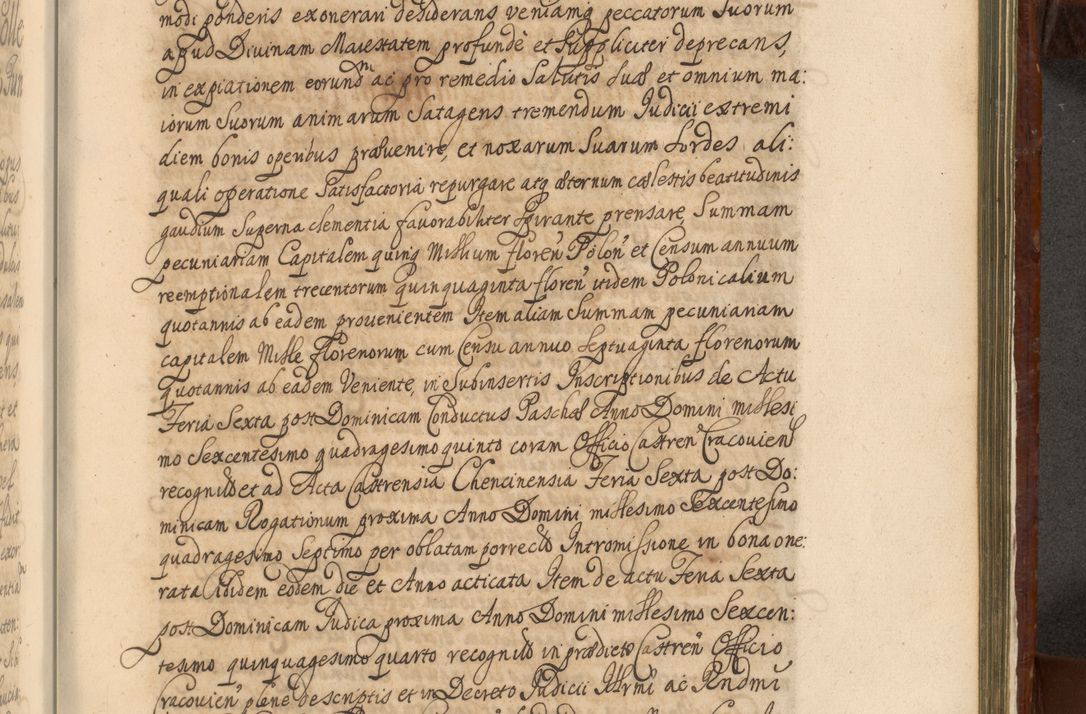 modi ponderis exonerari desiderans veniamq peccatorum Suorum
apud Divinam Maiestatem profundè et suppliciter deprecans,
in expiationem eorundm ac pro remedio Salutis suæ et omnium ma:
iorum Suorum animarum Satagens tremendum Iudicii extremi
diem bonis operibus prævenire, et noxarum Suarum Sordes ali:
quali operatione Satisfactoria repurgare atq æternum cælestis beatitudinis
gaudium Superna clementia favorabiliter Spirante prensare, Summam
pecuniariam Capitalem quinq Millium floren Polon et Censum annuum
reemptionalem trecentorum quinquaginta floren itidem Polonicalium
quotannis ab eadem provenientem Item aliam Summam pecuniariam
capitalem Mille florenorum cum Censu annuo Septuaginta florenorum
quotannis ab eadem Veniente, in Subinsertis Inscriptionibus de Actu
Feria Sexta post Dominicam Conductus Paschæ Anno Domini millesi
mo Sexcentesimo quadragesimo quinto coram Officio Castren Cracovien
recognito et ad Acta Castrensia Chencinensia Feria Sexta post Do:
minicam Rogationum proxima Anno Domini millesimo Sexcentesimo
quadragesimo Septimo per oblatam porrecto Intromissione in bona one:
rata ibidem eodem die et Anno acticata Item de actu Feria Sexta
post Dominicam Iudica proxima Anno Domini millesimo Sexcen:
tesimo quinquagesimo quarto recognito in prædicto Castren Officio
Cracovien plene descriptis et in Decreto Iudicii Illrmi ac Rndmi